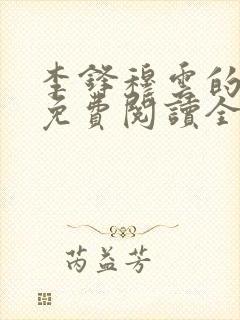 李鋒穆雲的
免費閱讀全
芮益芳